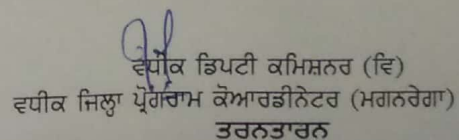 ਵਧੀਕ ਡਿਪਟੀ ਕਮਿਸ਼ਨਰ (ਵਿ)
ਵਧੀਕ ਜਿਲ੍ਹਾ ਪ੍ਰੋਗਰਾਮ ਕੋਆਰਡੀਨੇਟਰ (ਮਗਨਰੇਗਾ)
ਤਰਨਤਾਰਨ